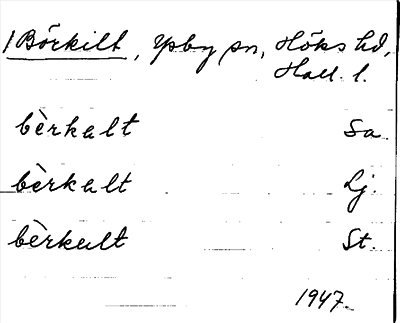 /Börkilt, Ysby sn, Höks hd,
Hall. l.
bèrkalt Sa
bèrkalt Lj.
bèrkalt St.
1947.